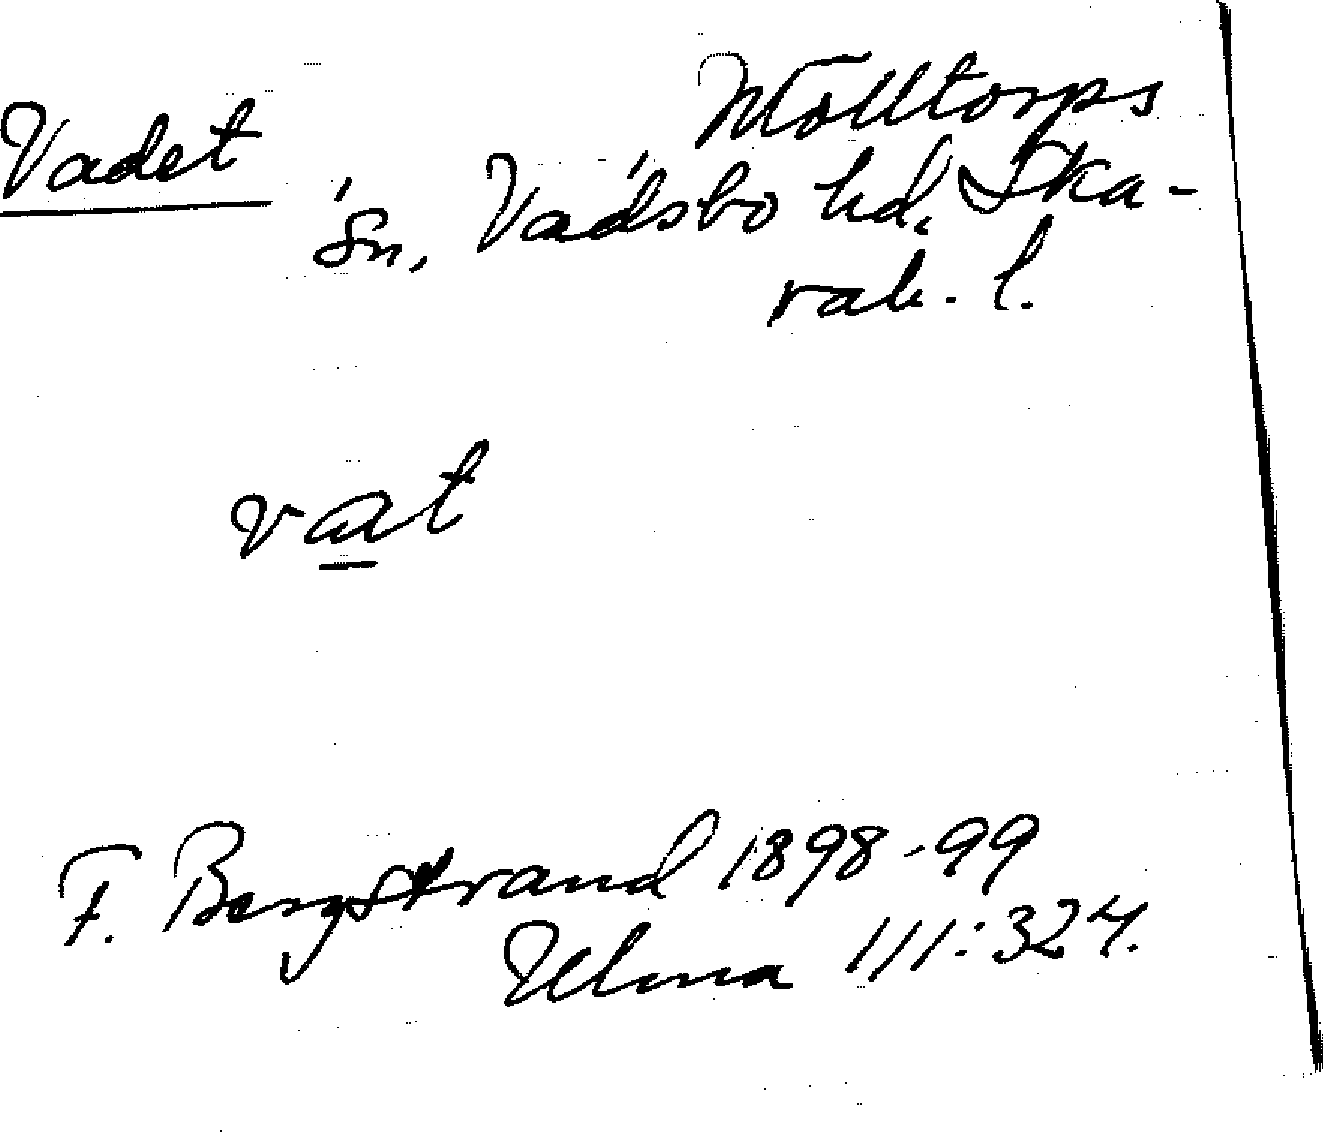 Vadet
Mölltorps
sn, Vadsbo hd, Ska-
rab. l.
vat
F. Bergstrand 1898-99
Ulma 111:324.